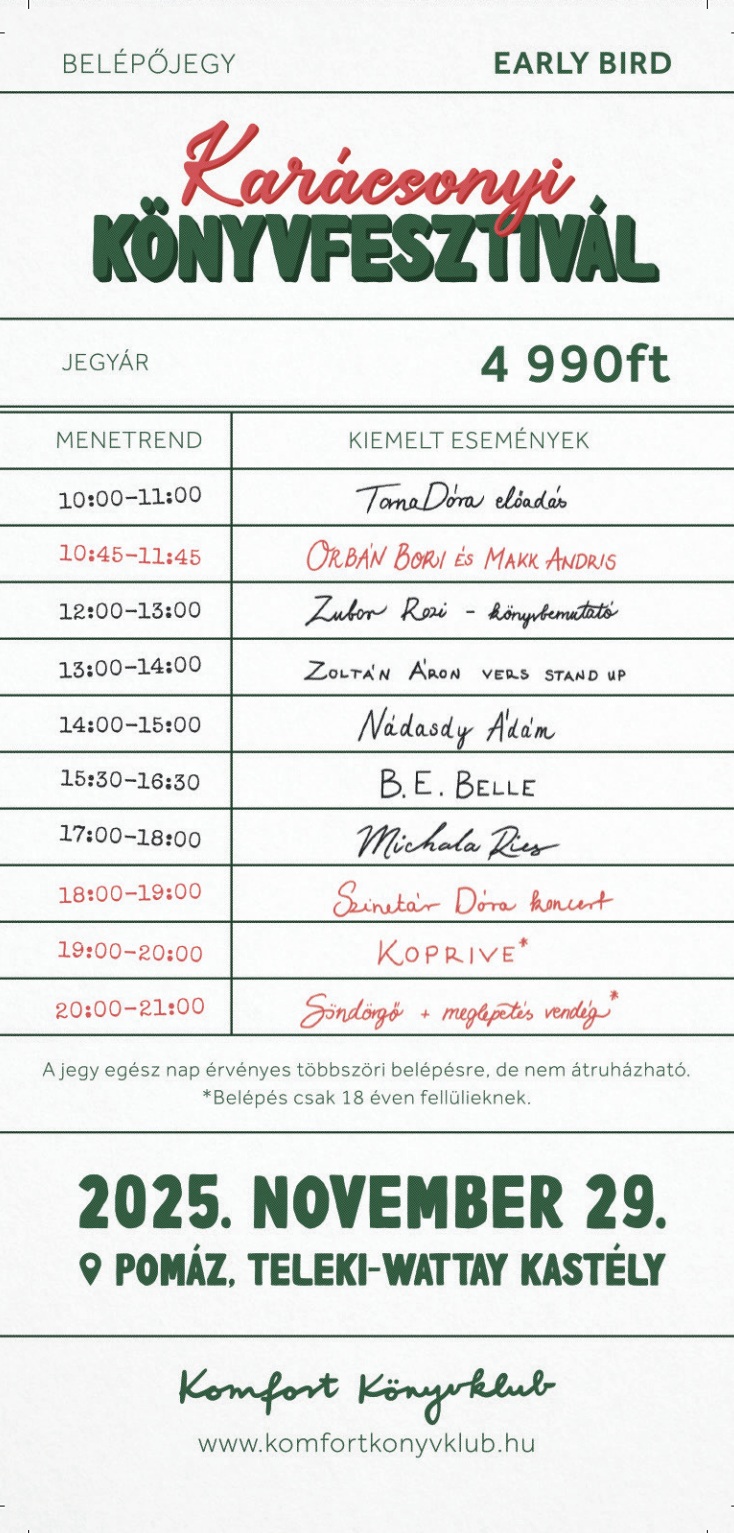 BELÉPŐJEGY EARLY BIRD
Karácsonyi
KÖNYVFESZTIVÁL
JEGYÁR 4 990ft
MENETREND KIEMELT ESEMÉNYEK
10:00-11:00 TomaDóra előadás
10:45-11:45 ORBÁN BORI ÉS MAKK ANDRIS
12:00-13:00 Zubor Rozi - könyvbemutató
13:00-14:00 ZOLTÁN ÁRON VERS STAND UP
14:00-15:00 Nádasdy Ádám
15:30-16:30 B.E. BELLE
17:00-18:00 Michala Ries
18:00-19:00 Szinetár Dóra koncert
19:00-20:00 KOPRIVE*
20:00-21:00 Söndörgő + meglepetés vendég*
A jegy egész nap érvényes többszöri belépésre, de nem átruházható.
*Belépés csak 18 éven fellülieknek.
2025. NOVEMBER 29.
POMÁZ, TELEKI-WATTAY KASTÉLY
Komfort Könyvklub
www.komfortkonyvklub.hu